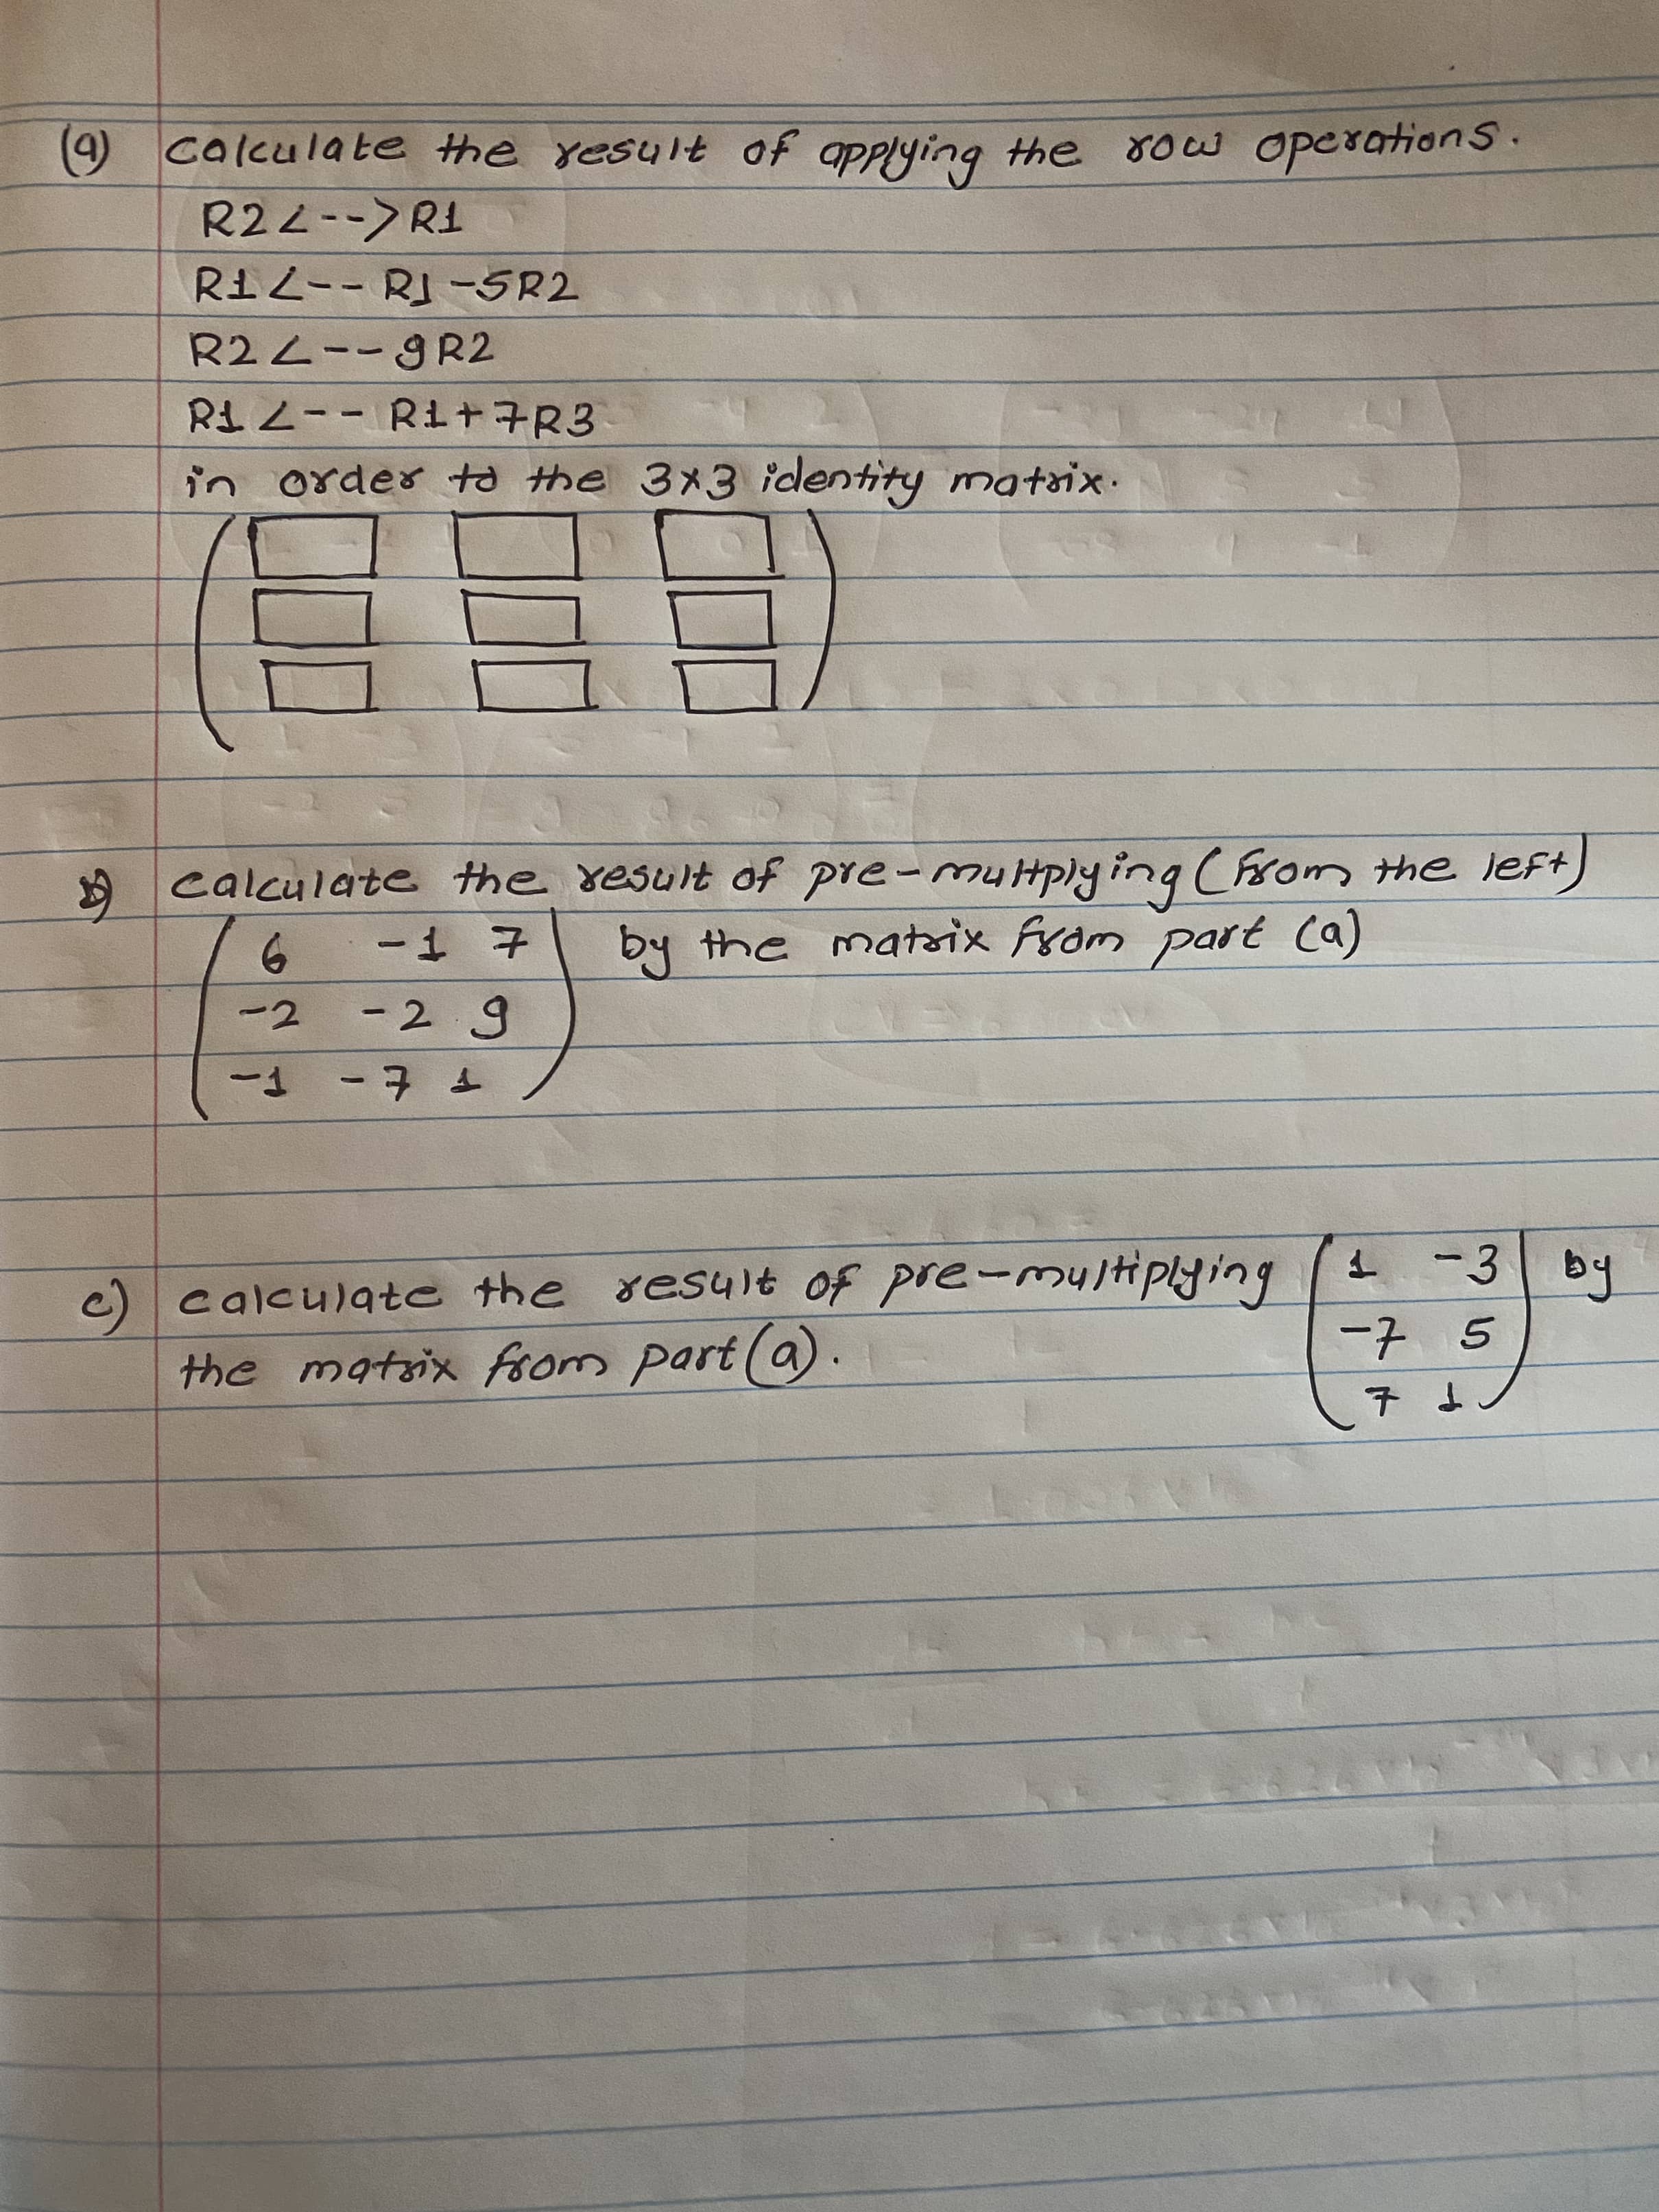 (a) calculate the result of applying the row operations.
R2<-->R1
R1<-- R1-5R2
R2<--9R2
R1<-- R1+7R3
in order to the 3x3 identity matrix.
b) calculate the result of pre-multplying (from the left)
6 -1 7 by the matrix from part (a)
-2 -2 9
-1 -7 1
c) calculate the result of pre-multiplying 1 -3 by
-7 5
the matrix from part (a).
7 1